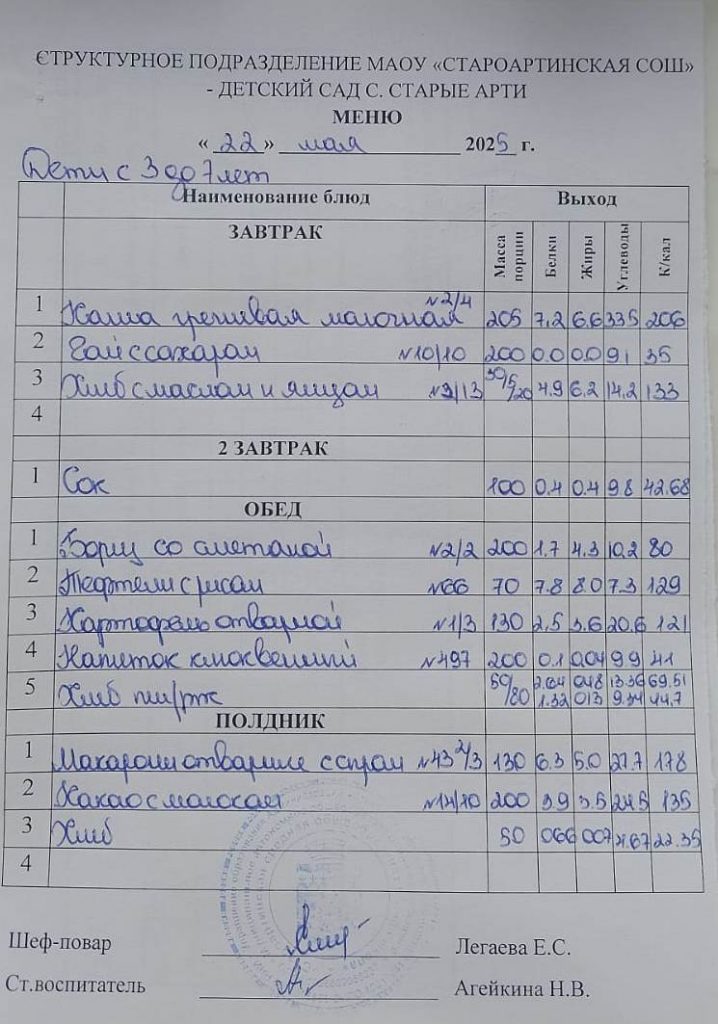 СТРУКТУРНОЕ ПОДРАЗДЕЛЕНИЕ МАОУ «СТАРОАРТИНСКАЯ СОШ»
- ДЕТСКИЙ САД С. СТАРЫЕ АРТИ
МЕНЮ
« 22 » мая 2025 г.
Дети с 3 до 7 лет
Наименование блюд Выход
ЗАВТРАК Масса порции Белки Жиры Углеводы К/кал
1 Каша гречневая молочная №2/4 205 7.2 6.6 33.5 206
2 Чай с сахаром №10/10 200 0.0 0.0 9.1 35
3 Хлеб с маслом и яйцом №3/13 30/5/20 4.9 6.2 14.2 133
4
2 ЗАВТРАК
1 Сок 100 0.4 0.4 9.8 42.68
ОБЕД
1 Борщ со сметаной №2/2 200 1.7 4.3 10.2 80
2 Тефтели с рисом №66 70 7.8 8.0 7.3 129
3 Картофель отварной №1/3 130 2.5 3.6 20.6 121
4 Напиток клюквенный №497 200 0.1 0.04 9.9 41
5 Хлеб пш/рж 50/80 2.64 0.48 13.36 69.51
1.32 013 9.34 44.7
ПОЛДНИК
1 Макароны отварные с сыром №43 2/3 130 6.3 5.0 27.7 178
2 Какао с молоком №14/10 200 3.9 3.5 24.5 135
3 Хлеб 50 066 007 4.67 22.35
4
Шеф-повар Легаева Е.С.
Ст.воспитатель Агейкина Н.В.